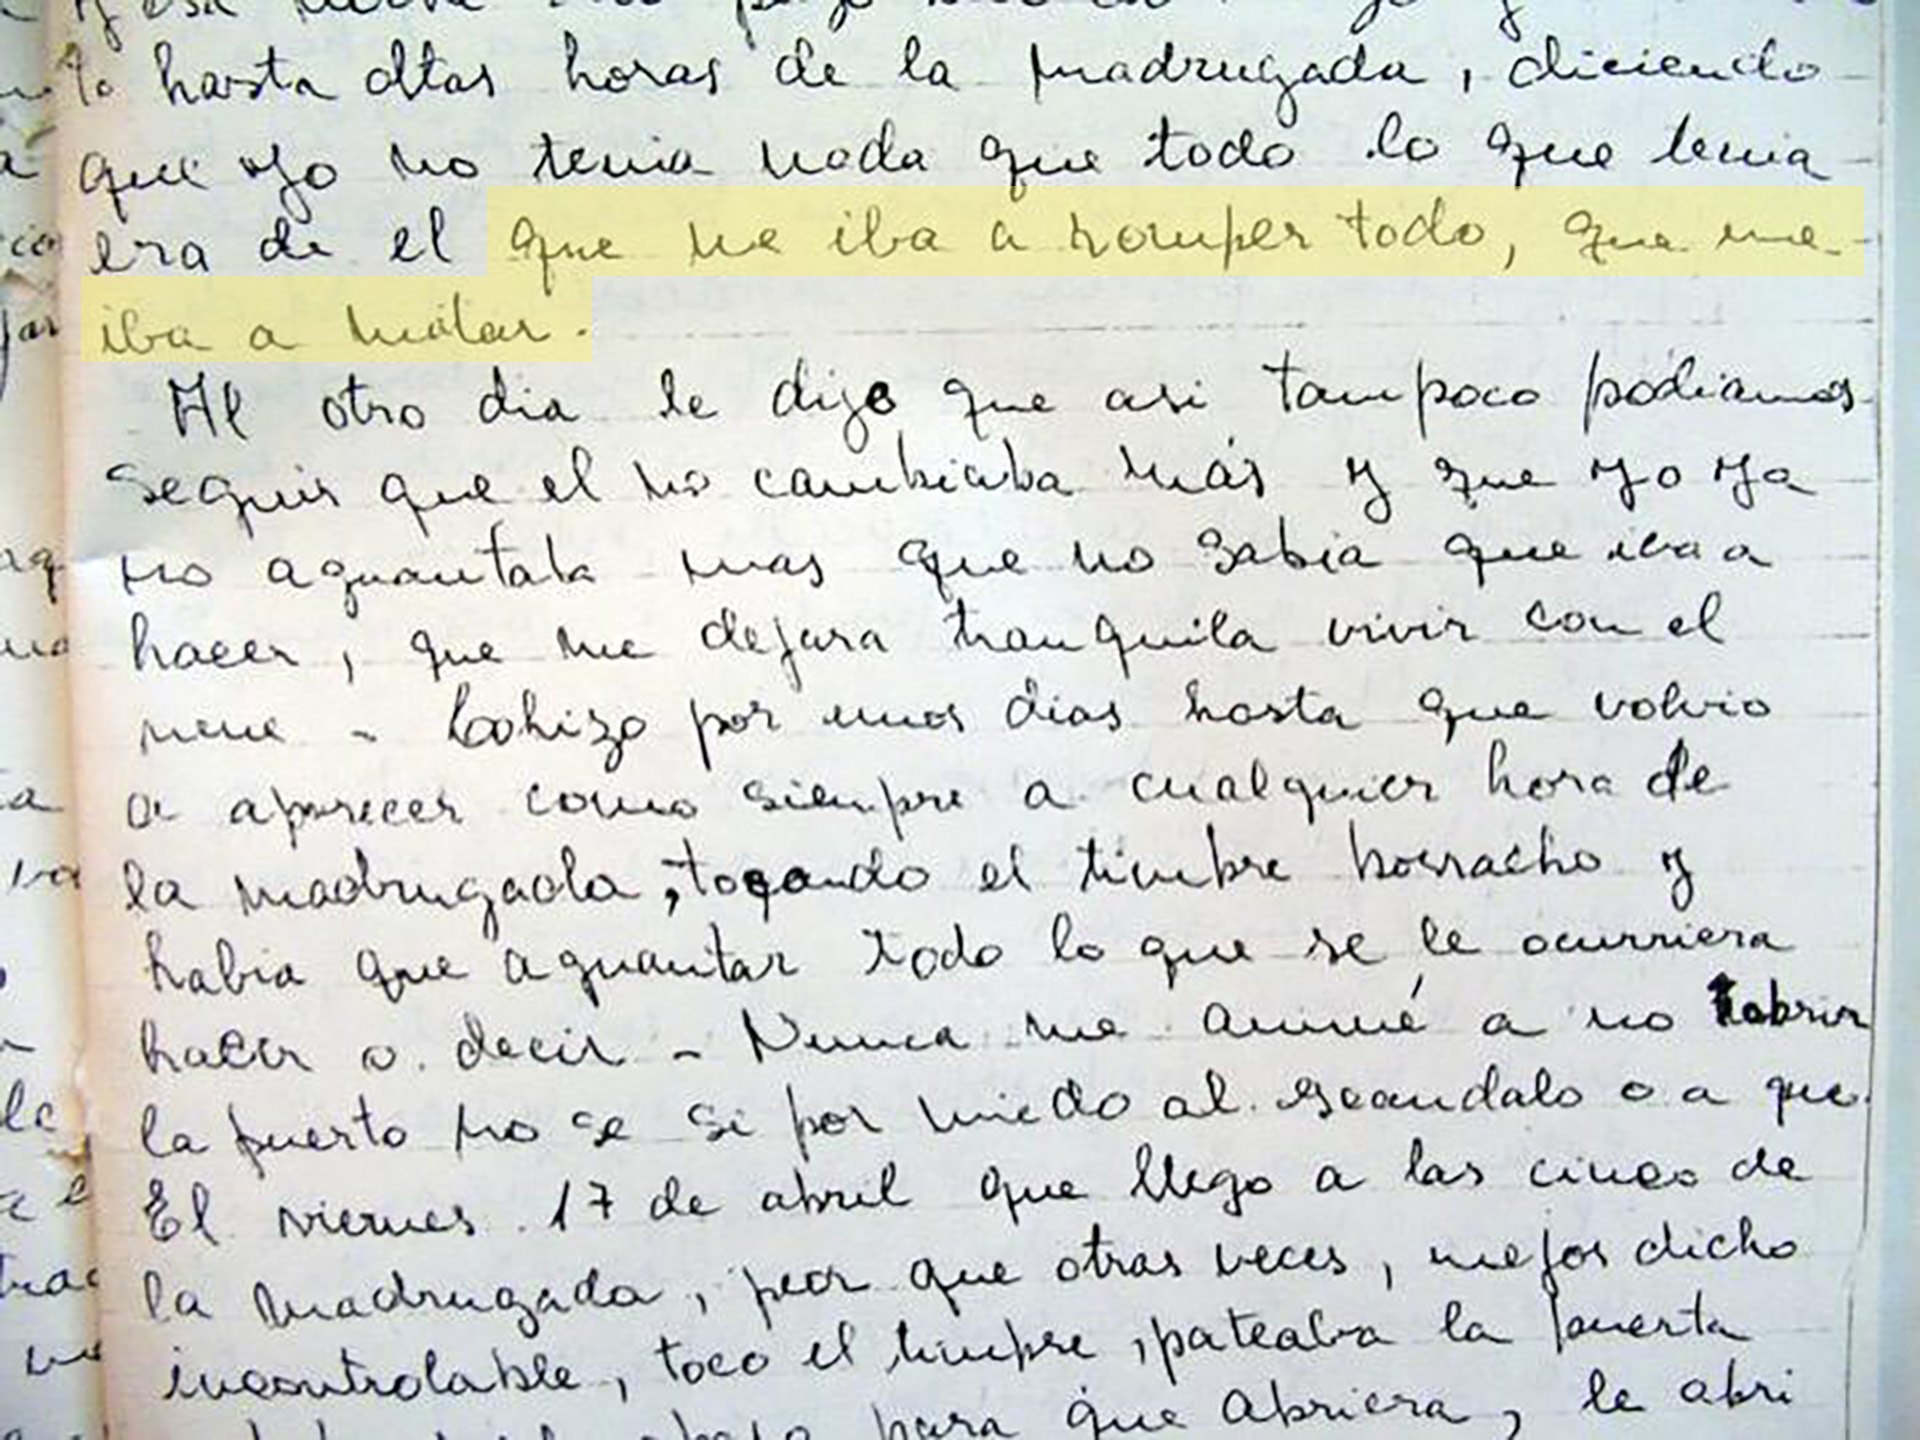 hasta altas horas de la madrugada, diciendo
que yo no tenia nada que todo lo que tenia
era de el que me iba a romper todo, que me
iba a matar.
Al otro dia le dije que asi tampoco podiamos
seguir que el no cambiaba más y que yo ya
no aguantaba mas que no sabia que iba a
hacer, que me dejara tranquila vivir con el
nene - Lo hizo por unos dias hasta que volvio
a aparecer como siempre a cualquier hora de
la madrugada, tocando el timbre borracho y
habia que aguantar todo lo que se le ocurriera
hacer o decir - Nunca me animé a no abrir
la puerta no se si por miedo al escandalo o a que
El viernes 17 de abril que llego a las cinco de
la madrugada, peor que otras veces, mejor dicho
incontrolable, toco el timbre, pateaba la puerta
para que abriera, le abri